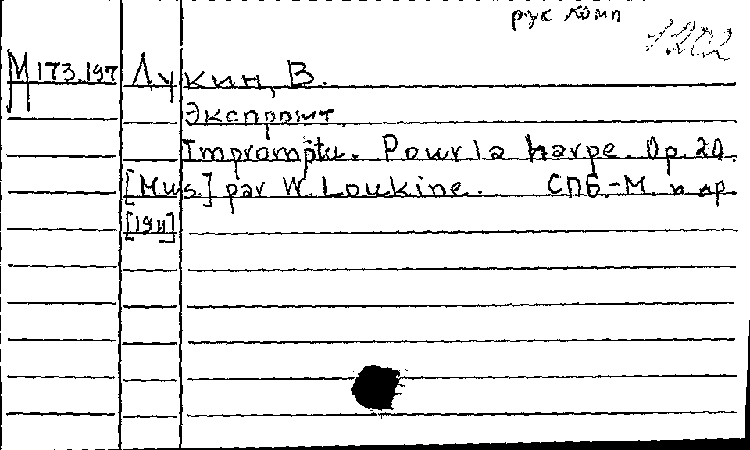 рук комп
1202
М 173.197 Лукин, В.
Экспромт.
Impromptu. Pour la harpe. Op. 20.
[Mus] par W. Loukine. СПб.-М. и др.
[1911]